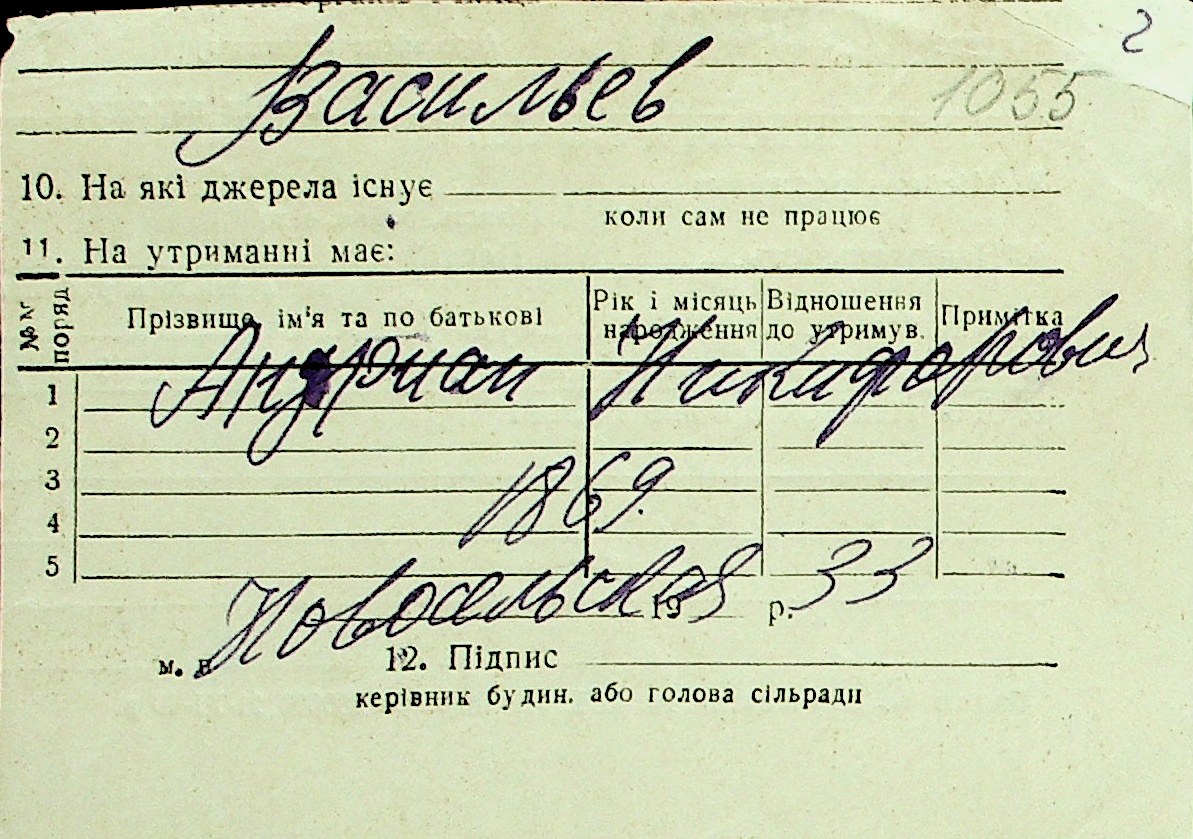 2
1055
Васильев
10. На які джерела існує
коли сам не працює
11. На утриманні має:
№№ поряд
Прізвище, ім'я та по батькові
Рік і місяць народження
Відношення до утримув.
Примітка
Андриан Никифорович
1
2
3
1869.
4
5
Новосельская 33
19 р.
м. п.
12. Підпис
керівник будин. або голова сільради